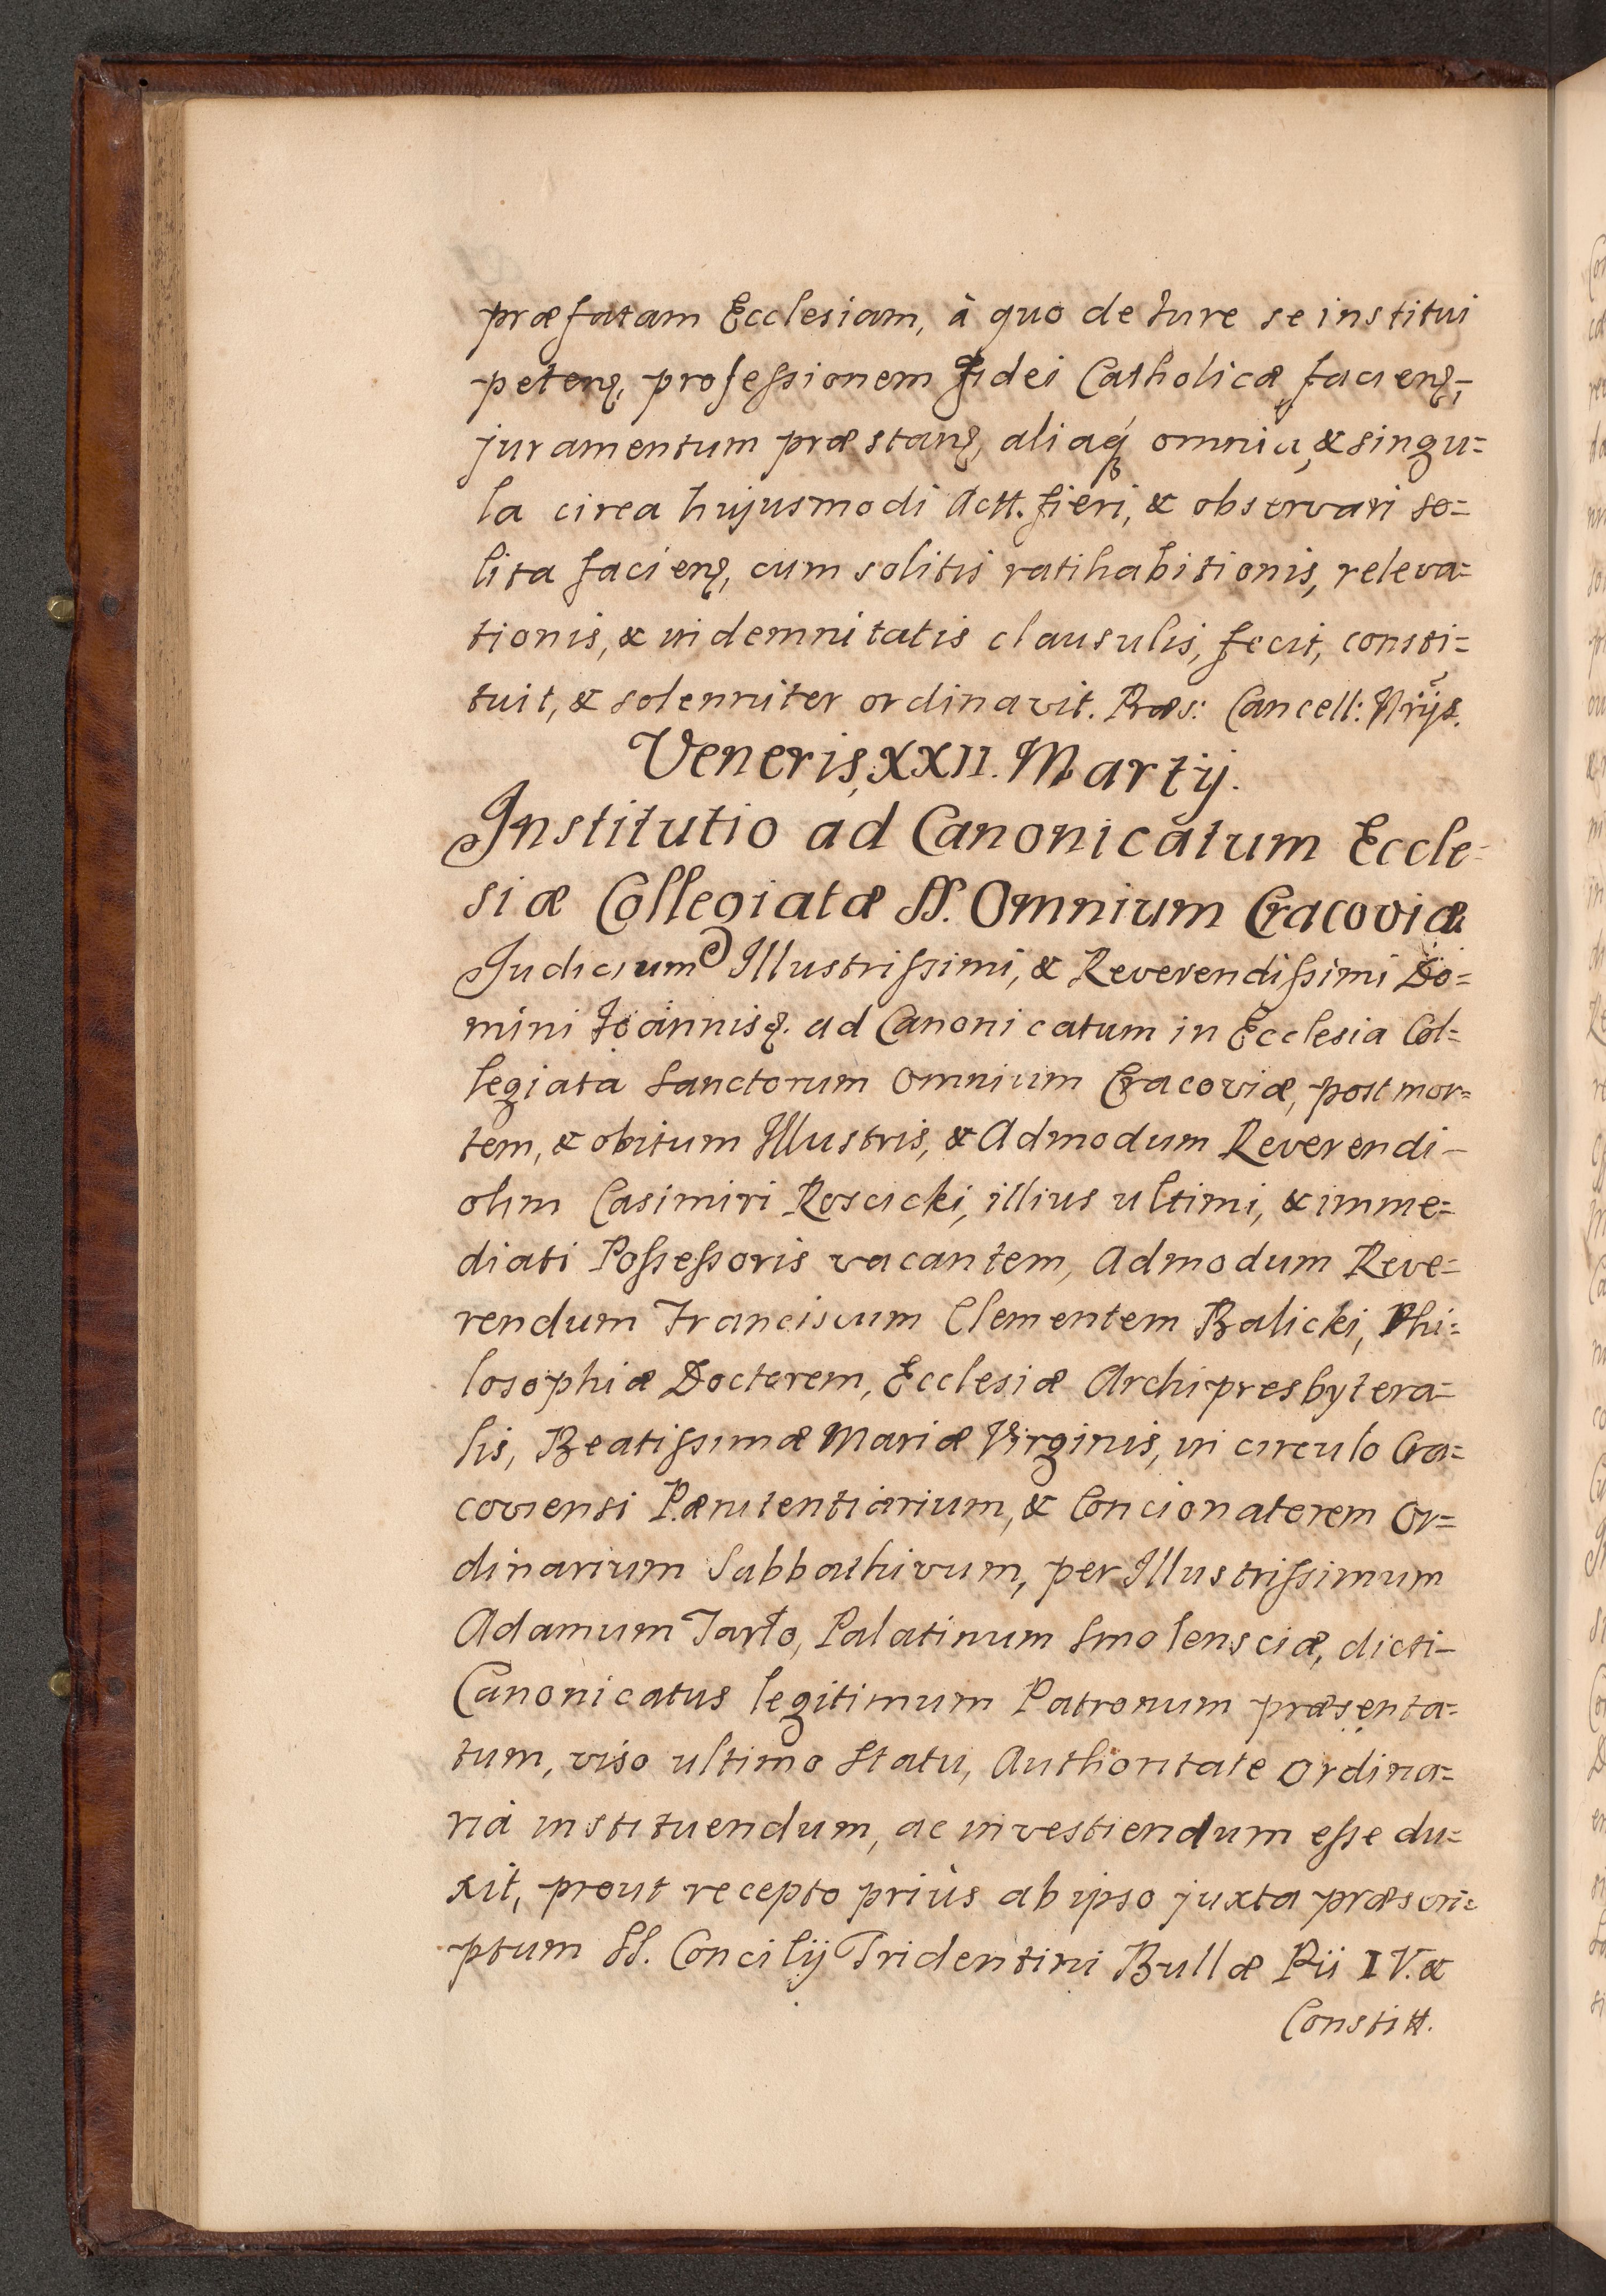 præfatam Ecclesiam, à quo de Iure se institui
petenꝫ, professionem Fidei Catholicæ facienꝫ,
juramentum præstanꝫ, aliaqꝫ omnia, & singu=
la circa hujusmodi Actt. fieri, & observari so=
lita facienꝫ, cum solitis ratihabitionis, releva=
tionis, & indemnitatis clausulis, fecit, consti=
tuit, & solenniter ordinavit. Præs: Cancell: Nrijs.
Veneris, XXII. Martij.
Institutio ad Canonicatum Eccle=
siæ Collegiatæ SS. Omnium Cracoviæ
Judicium Illustrissimi, & Reverendissimi Do=
mini Joannisꝫ. ad Canonicatum in Ecclesia Col=
legiata Sanctorum Omnium Cracoviæ, post mor=
tem, & obitum Illustris, & Admodum Reverendi
olim Casimiri Roscicki, illius ultimi, & imme=
diati Possessoris vacantem, Admodum Reve=
rendum Franciscum Clementem Balicki, Phi=
losophiæ Doctorem, Ecclesiæ Archipresbytera=
lis, Beatissimæ Mariæ Virginis, in circulo Cra=
coviensi Pænitentiarium, & Concionatorem Or=
dinarium Sabbathivum, per Illustrissimum
Adamum Tarło, Palatinum Smolensciæ, dicti
Canonicatus legitimum Patronum præsenta=
tum, viso ultimo Statu, Authoritate Ordina=
riâ instituendum, ac investiendum esse du=
xit, prout recepto priùs ab ipso juxta præscri=
ptum SS. Concilij Tridentini Bullæ Pii IV. &
Constitt.